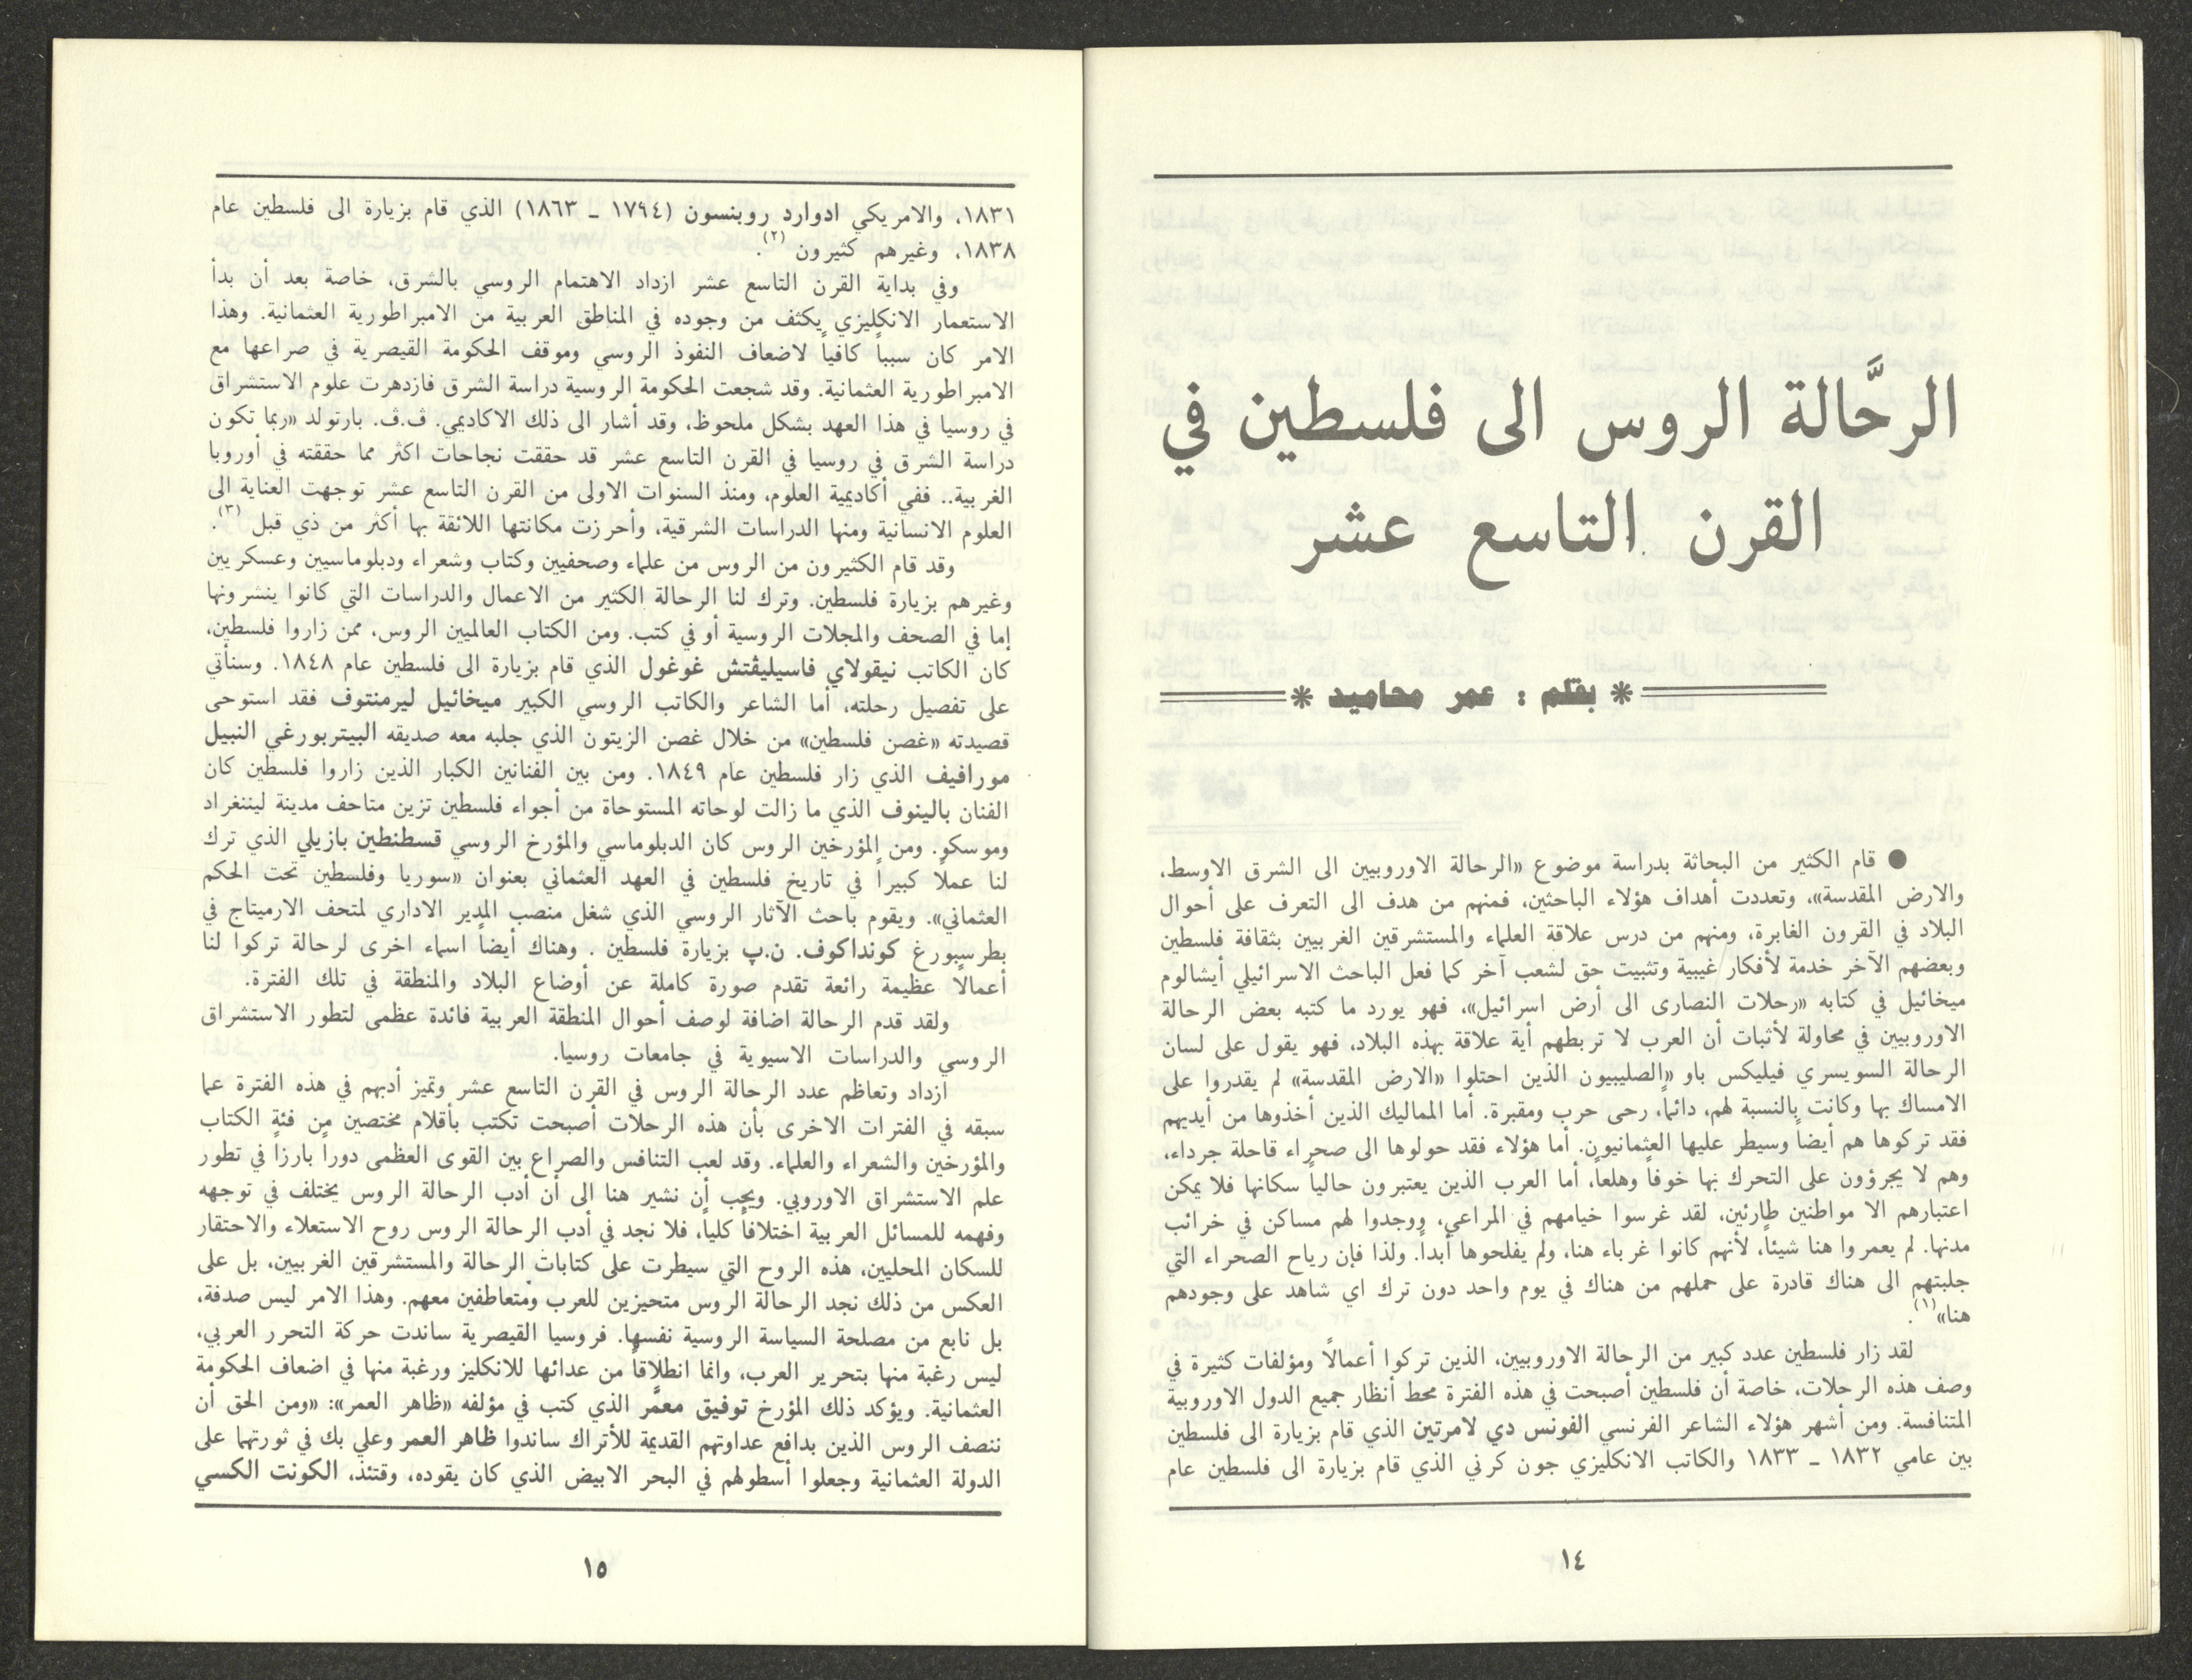 الرحَّالة الروس الى فلسطين في
القرن التاسع عشر
* بقلم : عمر محاميد *
● قام الكثير من البحاثة بدراسة موضوع «الرحالة الاوروبيين الى الشرق الاوسط،
والارض المقدسة»، وتعددت أهداف هؤلاء الباحثين، فمنهم من هدف الى التعرف على أحوال
البلاد في القرون الغابرة، ومنهم من درس علاقة العلماء والمستشرقين الغربيين بثقافة فلسطين
وبعضهم الآخر خدمة لأفكار غيبية وتثبيت حق لشعب آخر كما فعل الباحث الاسرائيلي أيشالوم
ميخائيل في كتابه «رحلات النصارى الى أرض اسرائيل»، فهو يورد ما كتبه بعض الرحالة
الاوروبيين في محاولة لأثبات أن العرب لا تربطهم أية علاقة بهذه البلاد، فهو يقول على لسان
الرحالة السويسري فيليكس باو «الصليبيون الذين احتلوا «الارض المقدسة» لم يقدروا على
الامساك بها وكانت بالنسبة لهم، دائماً، رحى حرب ومقبرة. أما المماليك الذين أخذوها من أيديهم
فقد تركوها هم أيضاً وسيطر عليها العثمانيون. أما هؤلاء فقد حولوها الى صحراء قاحلة جرداء،
وهم لا يجرؤون على التحرك بها خوفاً وهلعاً، أما العرب الذين يعتبرون حالياً سكانها فلا يمكن
اعتبارهم الا مواطنين طارئين، لقد غرسوا خيامهم في المراعي، ووجدوا لهم مساكن في خرائب
مدنها. لم يعمروا هنا شيئاً، لأنهم كانوا غرباء هنا، ولم يفلحوها أبداً. ولذا فإن رياح الصحراء التي
جلبتهم الى هناك قادرة على حملهم من هناك في يوم واحد دون ترك اي شاهد على وجودهم
هنا»(١).
لقد زار فلسطين عدد كبير من الرحالة الاوروبيين، الذين تركوا أعمالاً ومؤلفات كثيرة في
وصف هذه الرحلات، خاصة أن فلسطين أصبحت في هذه الفترة محط أنظار جميع الدول الاوروبية
المتنافسة. ومن أشهر هؤلاء الشاعر الفرنسي الفونس دي لامرتين الذي قام بزيارة الى فلسطين
بين عامي ١٨٣٢ ـ ١٨٣٣ والكاتب الانكليزي جون كرني الذي قام بزيارة الى فلسطين عام
١٤
١٨٣١، والامريكي ادوارد روبنسون (١٧٩٤ ـ ١٨٦٣) الذي قام بزيارة الى فلسطين عام
١٨٣٨، وغيرهم كثيرون (٢).
وفي بداية القرن التاسع عشر ازداد الاهتمام الروسي بالشرق، خاصة بعد أن بدأ
الاستعمار الانكليزي يكثف من وجوده في المناطق العربية من الامبراطورية العثمانية. وهذا
الامر كان سبباً كافياً لاضعاف النفوذ الروسي وموقف الحكومة القيصرية في صراعها مع
الامبراطورية العثمانية. وقد شجعت الحكومة الروسية دراسة الشرق فازدهرت علوم الاستشراق
في روسيا في هذا العهد بشكل ملحوظ، وقد أشار الى ذلك الاكاديمي. ڤ.ڤ. بارتولد «ربما تكون
دراسة الشرق في روسيا في القرن التاسع عشر قد حققت نجاحات اكثر مما حققته في أوروبا
الغربية.. ففي أكاديمية العلوم، ومنذ السنوات الاولى من القرن التاسع عشر توجهت العناية الى
العلوم الانسانية ومنها الدراسات الشرقية، وأحرزت مكانتها اللائقة بها أكثر من ذي قبل (٣).
وقد قام الكثيرون من الروس من علماء وصحفيين وكتاب وشعراء ودبلوماسيين وعسكريين
وغيرهم بزيارة فلسطين. وترك لنا الرحالة الكثير من الاعمال والدراسات التي كانوا ينشرونها
إما في الصحف والمجلات الروسية أو في كتب. ومن الكتاب العالميين الروس، ممن زاروا فلسطين،
كان الكاتب نيقولاي فاسيليڤتش غوغول الذي قام بزيارة الى فلسطين عام ١٨٤٨. وسنأتي
على تفصيل رحلته، أما الشاعر والكاتب الروسي الكبير ميخائيل ليرمنتوف فقد استوحى
قصيدته «غصن فلسطين» من خلال غصن الزيتون الذي جلبه معه صديقه البيتربورغي النبيل
مورافيف الذي زار فلسطين عام ١٨٤٩. ومن بين الفنانين الكبار الذين زاروا فلسطين كان
الفنان بالينوف الذي ما زالت لوحاته المستوحاة من أجواء فلسطين تزين متاحف مدينة ليننغراد
وموسكو. ومن المؤرخين الروس كان الدبلوماسي والمؤرخ الروسي قسطنطين بازيلي الذي ترك
لنا عملاً كبيراً في تاريخ فلسطين في العهد العثماني بعنوان «سوريا وفلسطين تحت الحكم
العثماني». ويقوم باحث الآثار الروسي الذي شغل منصب المدير الاداري لمتحف الارميتاج في
بطرسبورغ كونداكوف. ن.پ بزيارة فلسطين . وهناك أيضاً اسماء اخرى لرحالة تركوا لنا
أعمالاً عظيمة رائعة تقدم صورة كاملة عن أوضاع البلاد والمنطقة في تلك الفترة.
ولقد قدم الرحالة اضافة لوصف أحوال المنطقة العربية فائدة عظمى لتطور الاستشراق
الروسي والدراسات الاسيوية في جامعات روسيا.
ازداد وتعاظم عدد الرحالة الروس في القرن التاسع عشر وتميز أدبهم في هذه الفترة عما
سبقه في الفترات الاخرى بأن هذه الرحلات أصبحت تكتب بأقلام مختصين من فئة الكتاب
والمؤرخين والشعراء والعلماء. وقد لعب التنافس والصراع بين القوى العظمى دوراً بارزاً في تطور
علم الاستشراق الاوروبي. ويجب أن نشير هنا الى أن أدب الرحالة الروس يختلف في توجهه
وفهمه للمسائل العربية اختلافاً كلياً، فلا نجد في أدب الرحالة الروس روح الاستعلاء والاحتقار
للسكان المحليين، هذه الروح التي سيطرت على كتابات الرحالة والمستشرقين الغربيين، بل على
العكس من ذلك نجد الرحالة الروس متحيزين للعرب ومتعاطفين معهم. وهذا الامر ليس صدفة،
بل نابع من مصلحة السياسة الروسية نفسها. فروسيا القيصرية ساندت حركة التحرر العربي،
ليس رغبة منها بتحرير العرب، وانما انطلاقاً من عدائها للانكليز ورغبة منها في اضعاف الحكومة
العثمانية. ويؤكد ذلك المؤرخ توفيق معمَّر الذي كتب في مؤلفه «ظاهر العمر»: «ومن الحق أن
ننصف الروس الذين بدافع عداوتهم القديمة للأتراك ساندوا ظاهر العمر وعلي بك في ثورتهما على
الدولة العثمانية وجعلوا أسطولهم في البحر الابيض الذي كان يقوده، وقتئذ، الكونت الكسي
١٥